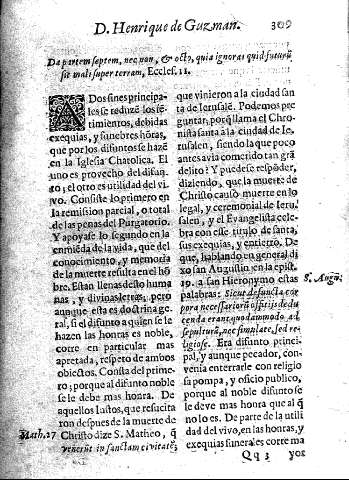 D. Henrique de Guzman. 309
Da partem septem, nec non, & octo, quia ignoras quid futurũ
sit mali super terram, Eccles. 11.
A Dos fines principa-
les se reduzẽ los sẽ-
timientos, debidas
exequias, y funebres hõras,
que por los difuntos se hazẽ
en la Iglesia Chatolica. El
uno es provecho del difun-
to; el otro es utilidad del vi-
vo. Consiste lo primero en
la remission parcial, o total
de las penas del Purgatorio.
Y apoyase lo segundo en la
enmiẽda de la vida, que del
conocimiento, y memoria
de la muerte resulta en el hõ
bre. Estan llenas desto huma
nas, y divinas letras; pero
aunque esta es doctrina ge-
ral, si el difunto a quien se le
hazen las honras es noble,
corre en particular mas
apretada, respeto de ambos
obiectos. Consta del prime-
ro; porque al difunto noble
se le debe mas honra. De
aquellos justos, que resucita
ron despues de la muerte de
Math. 27 Christo dize S. Matheo, q̃
venerũt in sanctam civitatẽ;
que vinieron a la ciudad san
ta de Ierusalẽ. Podemos pre
guntar; porq̃ llama el Chro-
nista santa a la ciudad de Ie-
rusalen, siendo la que poco
antes avia cometido tan grã
delito? Y puedese respõder,
diziendo, que la muerte de
Christo causó muerte en lo
legal, y ceremonial de Ieru-
salen, y el Evangelista cele-
bra con ese titulo de santa,
sus exequias, y entierro. De
que, hablando en general di
xo san Augustin en la epist.
19. a san Hieronymo estas S. Augũ.
palabras: Sicut defuncta cor
pora necessariorũ officijs de du
cenda erant quodammodo ad
sepulturã, nec simulate, sed re-
ligiose. Era difunto princi-
pal, y aunque pecador, con-
venia enterrarle con religio
sa pompa, y oficio publico,
porque al noble difunto se
le deve mas honra que al q̃
no lo es. De parte de la utili
dad del vivo, en las honras, y
exequias funerales corre ma
Qq 3 yor